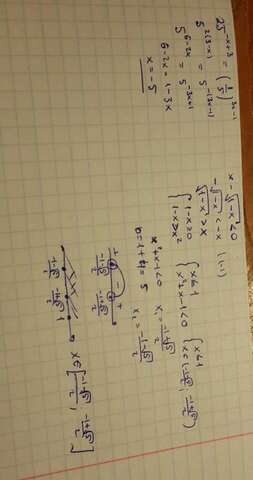 25^{-x+3} = (1/5)^{3x-1}
5^{2(3-x)} = 5^{-(3x-1)}
5^{6-2x} = 5^{-3x+1}
6-2x = 1-3x
x = -5
x - √(1-x) < 0
-√(1-x) < -x | (-1)
√(1-x) > x
{ 1-x≥0 { x≤1 { x≤1
{ 1-x>x² { x²+x-1<0 { x∈((-1-√5)/2; (-1+√5)/2)
x²+x-1<0
D=1+4=5
x₁ = (-1+√5)/2
x₂ = (-1-√5)/2
+ - +
(-1-√5)/2 (-1+√5)/2
(-1-√5)/2 (-1+√5)/2 1
x∈[(-1-√5)/2; (-1+√5)/2]